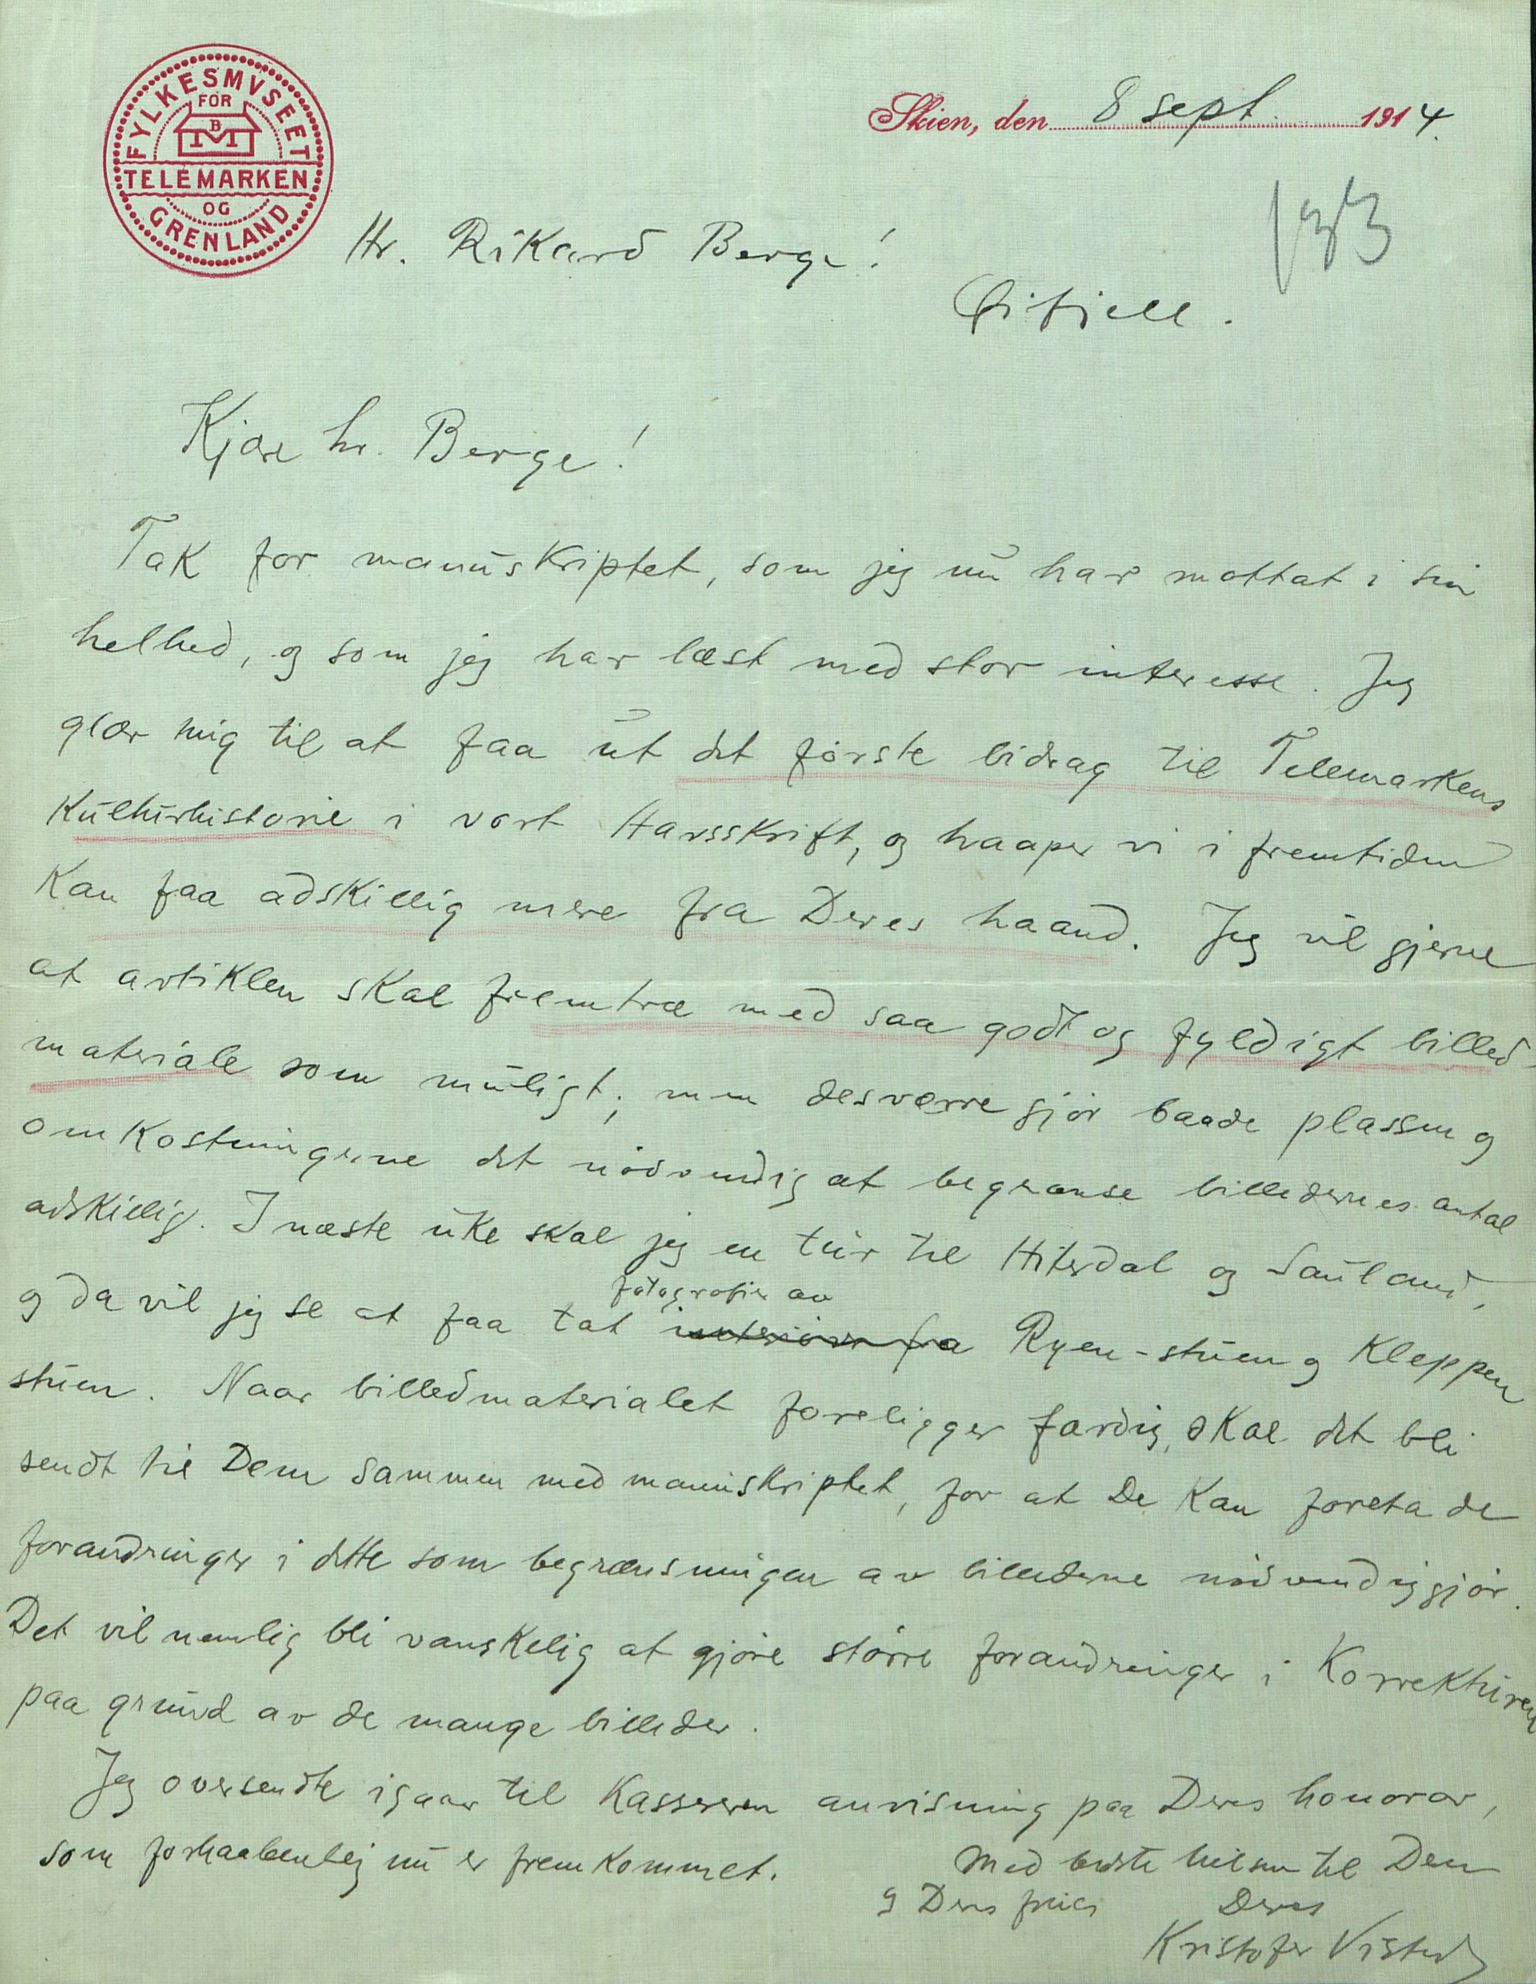 FYLKESMVSEET
FOR
BM
TELEMARKEN
OG
GRENLAND
Skien, den 8 sept. 1914.
133
Hr. Rikard Berge!
Øifjell.
Kjære hr. Berge!
Tak for manuskriptet, som jeg nu har mottat i sin
helhed, og som jeg har læst med stor interesse. Jeg
glær mig til at faa ut det første bidrag til Telemarkens
Kulturhistorie i vort Aarsskrift, og haaper vi i fremtiden
kan faa adskillig mere fra Deres haand. Jeg vil gjerne
at artiklen skal fremtræ med saa godt og fyldigt billed-
materiale som muligt; men desværre gjør baade plassen og
omkostningerne det nødvendig at begrænse billedernes antal
adskillig. I næste uke skal jeg en tur til Hiterdal og Sauland,
fotografier av
og da vil jeg se at faa tat interiører fra Ryen-stuen og Kleppen
stuen. Naar billedmaterialet foreligger færdig, skal det bli
sendt til Dem sammen med manuskriptet, for at De kan foreta de
forandringer i dette som begrænsningen av billederne nødvendiggjør.
Det vil nemlig bli vanskelig at gjøre større forandringer i Korrekturen
paa grund av de mange billeder.
Jeg oversendte igaar til Kassereren anvisning paa Deres honorar,
som forhaabentlig nu er fremkommet.
Med bedste hilsen til Dem
og Deres frue
Deres
Kristofer Visted